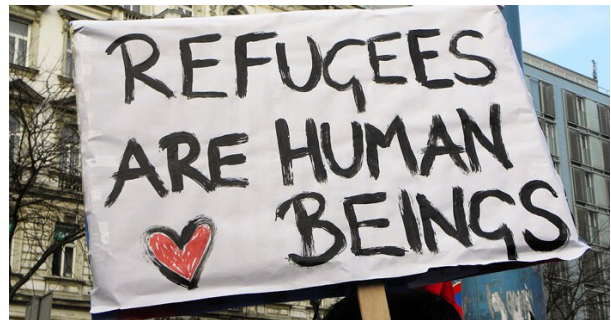 REFUGEES
ARE HUMAN
BEINGS